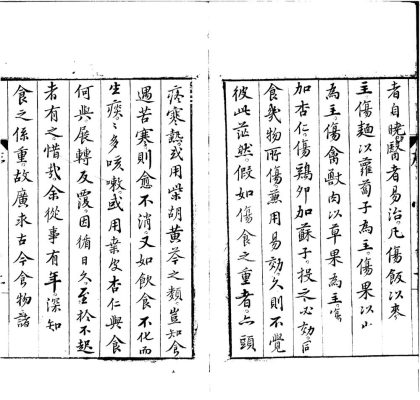 者自曉醫者易治凡傷飯以麥
主傷麺以蘿蔔子為主傷果以山
為主傷禽獸肉以草果為主
加杏仁傷鷄卵加蘇子投之必効
食幾物所傷薫用易効久則不覺
彼此茫然假如傷食之重者亦頭
疼寒熱或用柴胡黃芩之類豈知食
遇苦寒則愈不消又如飲食不化而
生痰痰多咳嗽或用桑皮杏仁與食
何與展轉反覆因循日久至於不起
者有之惜哉余從事有年深知
食之係重故廣求古今食物諸